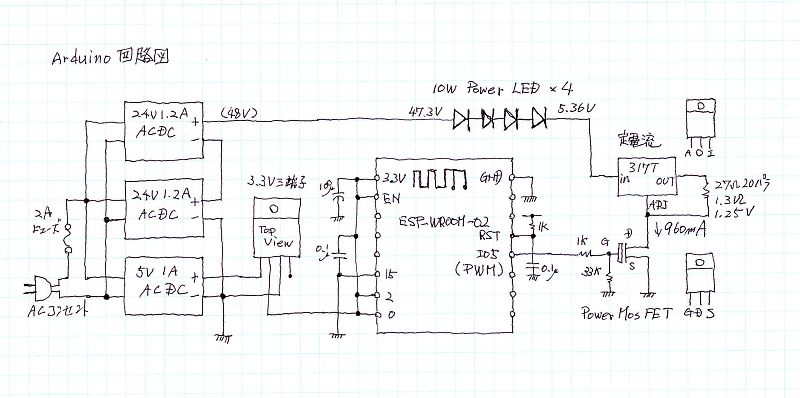 Arduino 回路図
10W Power LED × 4
24V 1.2A
ACDC
+
−
(48V)
47.3V
5.36V
定電流
O
A O I
317T
in
OUT
ADJ
27Ω 20パラ
1.3Ω
1.25V
↓960mA
24V 1.2A
ACDC
+
−
3.3V三端子
O
Top
View
2A
ヒューズ
5V 1A
ACDC
+
−
ACコンセント
10μ
0.1
3.3V
EN
GND
ESP-WROOM-02
RST
IO5
(PWM)
15
2
0
1K
0.1μ
1K
33K
G
D
S
Power Mos FET
O
G D S